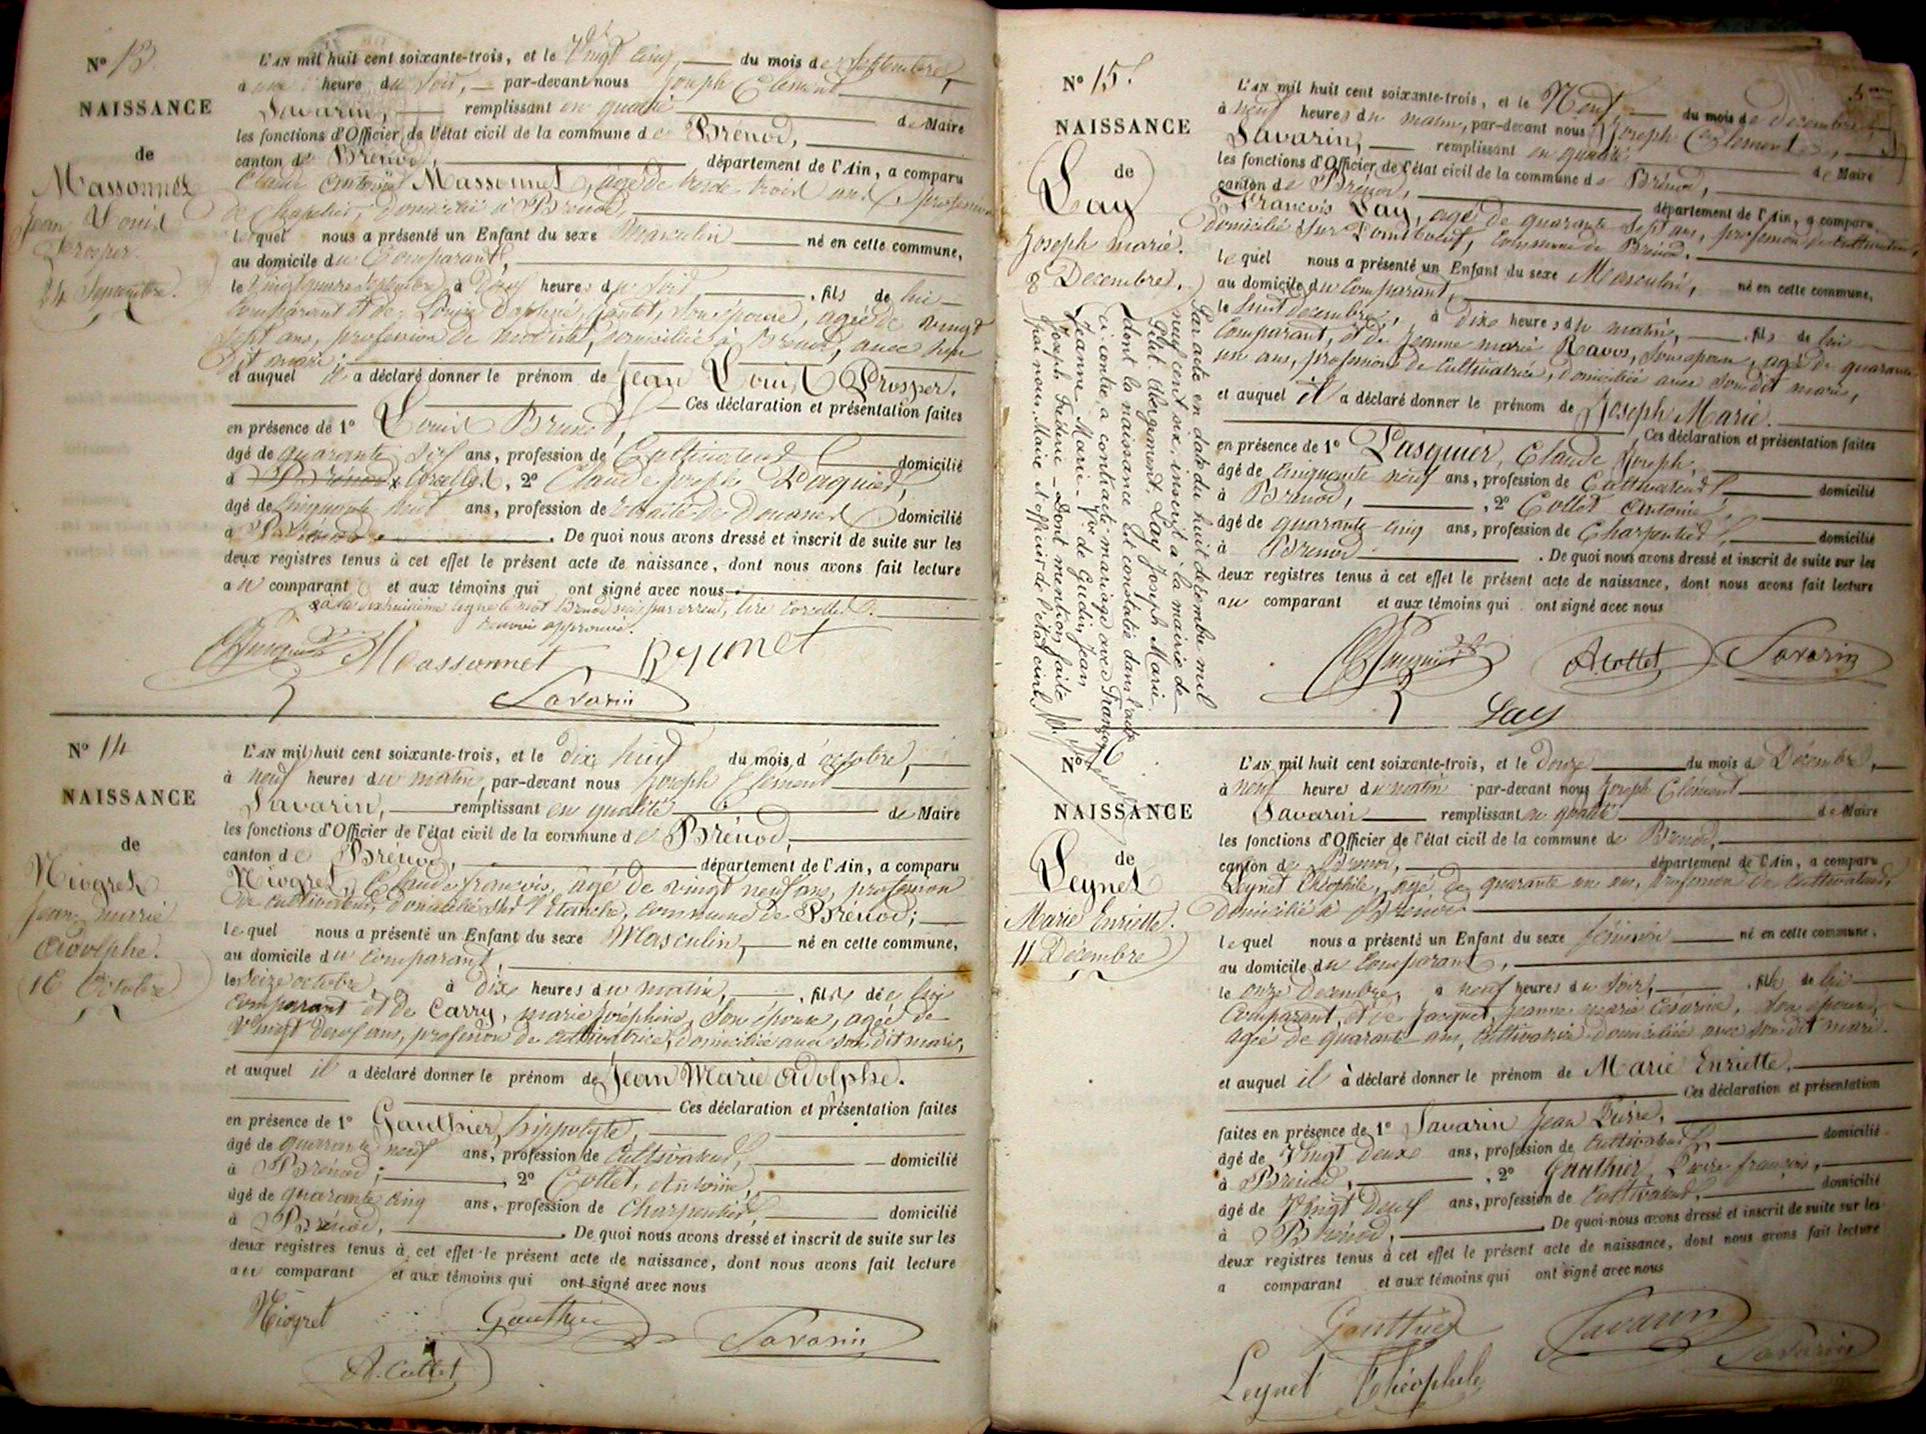 N° 13
NAISSANCE
de
Massonnet
Jean Louis
Prosper.
24 Septembre.
L'AN mil huit cent soixante-trois, et le Vingt cinq du mois de Septembre,
à une heure du soir, par-devant nous Joseph Clément
Savarin, remplissant en qualité de Maire
les fonctions d'Officier de l'état civil de la commune de Brénod,
canton de Brénod, département de l'Ain, a comparu
Claude Massonnet, agé de trente trois ans, profession
de Chapelier, domicilié à Brénod,
lequel nous a présenté un Enfant du sexe Masculin né en cette commune,
au domicile du Comparant,
le vingt quatre septembre à heures du soir , fils de lui
comparant et de Louise son épouse, agée de vingt
sept ans, profession de modiste, domiciliée à Brénod, avec son
dit mari;
et auquel il a déclaré donner le prénom de Jean Louis Prosper.
Ces déclaration et présentation faites
en présence de 1° Louis Brunet,
âgé de quarante six ans, profession de Cultivateur domicilié
à Brénod x Corcelles, 2° Claude joseph Paquier,
âgé de cinquante huit ans, profession de retraité de Douanes domicilié
à Brénod. De quoi nous avons dressé et inscrit de suite sur les
deux registres tenus à cet effet le présent acte de naissance, dont nous avons fait lecture
au comparant et aux témoins qui ont signé avec nous
x à la dixhuitième ligne le mot Brénod mis par erreur, lire Corcelles.
Renvoi approuvé.
Massonnet Brunet
Savarin
N° 14
NAISSANCE
de
Niogret
Jean marie
adolphe.
16 Octobre
L'AN mil huit cent soixante-trois, et le dix huit du mois d'octobre,
à neuf heures du matin, par-devant nous Joseph Clément
Savarin, remplissant en qualité de Maire
les fonctions d'Officier de l'état civil de la commune de Brénod,
canton de Brénod, département de l'Ain, a comparu
Niogret, Claude françois, âgé de vingt neuf ans, profession
de cultivateur, domicilié sur l'Etanche, commune de Brénod;
lequel nous a présenté un Enfant du sexe Masculin, né en cette commune,
au domicile du comparant,
le Seize octobre à dix heures du matin, , fils de lui
comparant et de Carry, marie joséphine, son épouse, agée de
Vingt deux ans, profession de cultivatrice, domiciliée avec son dit mari,
et auquel il a déclaré donner le prénom de Jean Marie adolphe.
Ces déclaration et présentation faites
en présence de 1° Gauthier, hippolyte,
âgé de quarante neuf ans, profession de Cultivateur, domicilié
à Brénod; , 2° Collet, Antoine,
âgé de quarante cinq ans, profession de Charpentier, domicilié
à Brénod, . De quoi nous avons dressé et inscrit de suite sur les
deux registres tenus à cet effet le présent acte de naissance, dont nous avons fait lecture
au comparant et aux témoins qui ont signé avec nous
Niogret Gauthier Savarin
A. Collet
N° 15.
NAISSANCE
de
Lay
Joseph marie.
8 Decembre.
Par acte en date du huit décembre mil
neuf cent six, inscrit à la mairie de
Petit Abergement, Lay Joseph Marie
dont la naissance est constatée dans l'acte
ci contre a contracté mariage avec Françon
Jeanne Marie Vve de Gudin, Jean
Joseph Fréderic - Dont mention faite
par nous, Maire et officier de l'état civil
L'AN mil huit cent soixante-trois, et le Neuf du mois de décembre,
à neuf heures du matin, par-devant nous Joseph Clément
Savarin, remplissant en qualité de Maire
les fonctions d'Officier de l'état civil de la commune de Brénod,
canton de Brénod, département de l'Ain, a comparu
François Lay, agé de quarante sept ans, profession de cultivateur,
domicilié sur commune de Brénod.
lequel nous a présenté un Enfant du sexe Masculin, né en cette commune,
au domicile du Comparant,
le huit decembre, à dix heures du matin, , fils de lui
Comparant, et de Jeanne marie Ravos, son épouse, agée de quarante
un ans, profession de Cultivatrice, domiciliée avec son dit mari,
et auquel il a déclaré donner le prénom de Joseph Marie.
Ces déclaration et présentation faites
en présence de 1° Pasquier, Claude Joseph,
âgé de Cinquante neuf ans, profession de Cultivateur domicilié
à Brénod, , 2° Collet Antoine,
âgé de quarante-cinq ans, profession de Charpentier, domicilié
à Brénod . De quoi nous avons dressé et inscrit de suite sur les
deux registres tenus à cet effet le présent acte de naissance, dont nous avons fait lecture
au comparant et aux témoins qui ont signé avec nous
A Collet Savarin
Lay
N°
NAISSANCE
de
Leynet
Marie Enriette.
11 Décembre
L'AN mil huit cent soixante-trois, et le Douze du mois de Décembre,
à neuf heure du matin par-devant nous Joseph Clément
Savarin remplissant en qualité de Maire
les fonctions d'Officier de l'état civil de la commune de Brénod,
canton de Brénod, département de l'Ain, a comparu
Leynet Théophile, agé de quarante un ans, profession de cultivateur,
Domicilié à Brénod
lequel nous a présenté un Enfant du sexe féminin né en cette commune,
au domicile du Comparant,
le onze Decembre, à neuf heures du soir, , fille de lui
Comparant, et de Jacquet, Jeanne marie Césarine, son épouse,
agée de quarante ans, cultivatrice domiciliée avec son dit mari.
et auquel il à déclaré donner le prénom de Marie Enriette,
Ces déclaration et présentation
faites en présence de 1° Savarin Jean Pierre,
âgé de Vingt deux ans, profession de cultivateur, domicilié
à Brénod, , 2° Gauthier, françois,
âgé de Vingt ans, profession de Cultivateur, domicilié
à Brénod, . De quoi nous avons dressé et inscrit de suite sur les
deux registres tenus à cet effet le présent acte de naissance, dont nous avons fait lecture
a comparant et aux témoins qui ont signé avec nous
Gauthier Savarin
Leynet Théophile Savarin